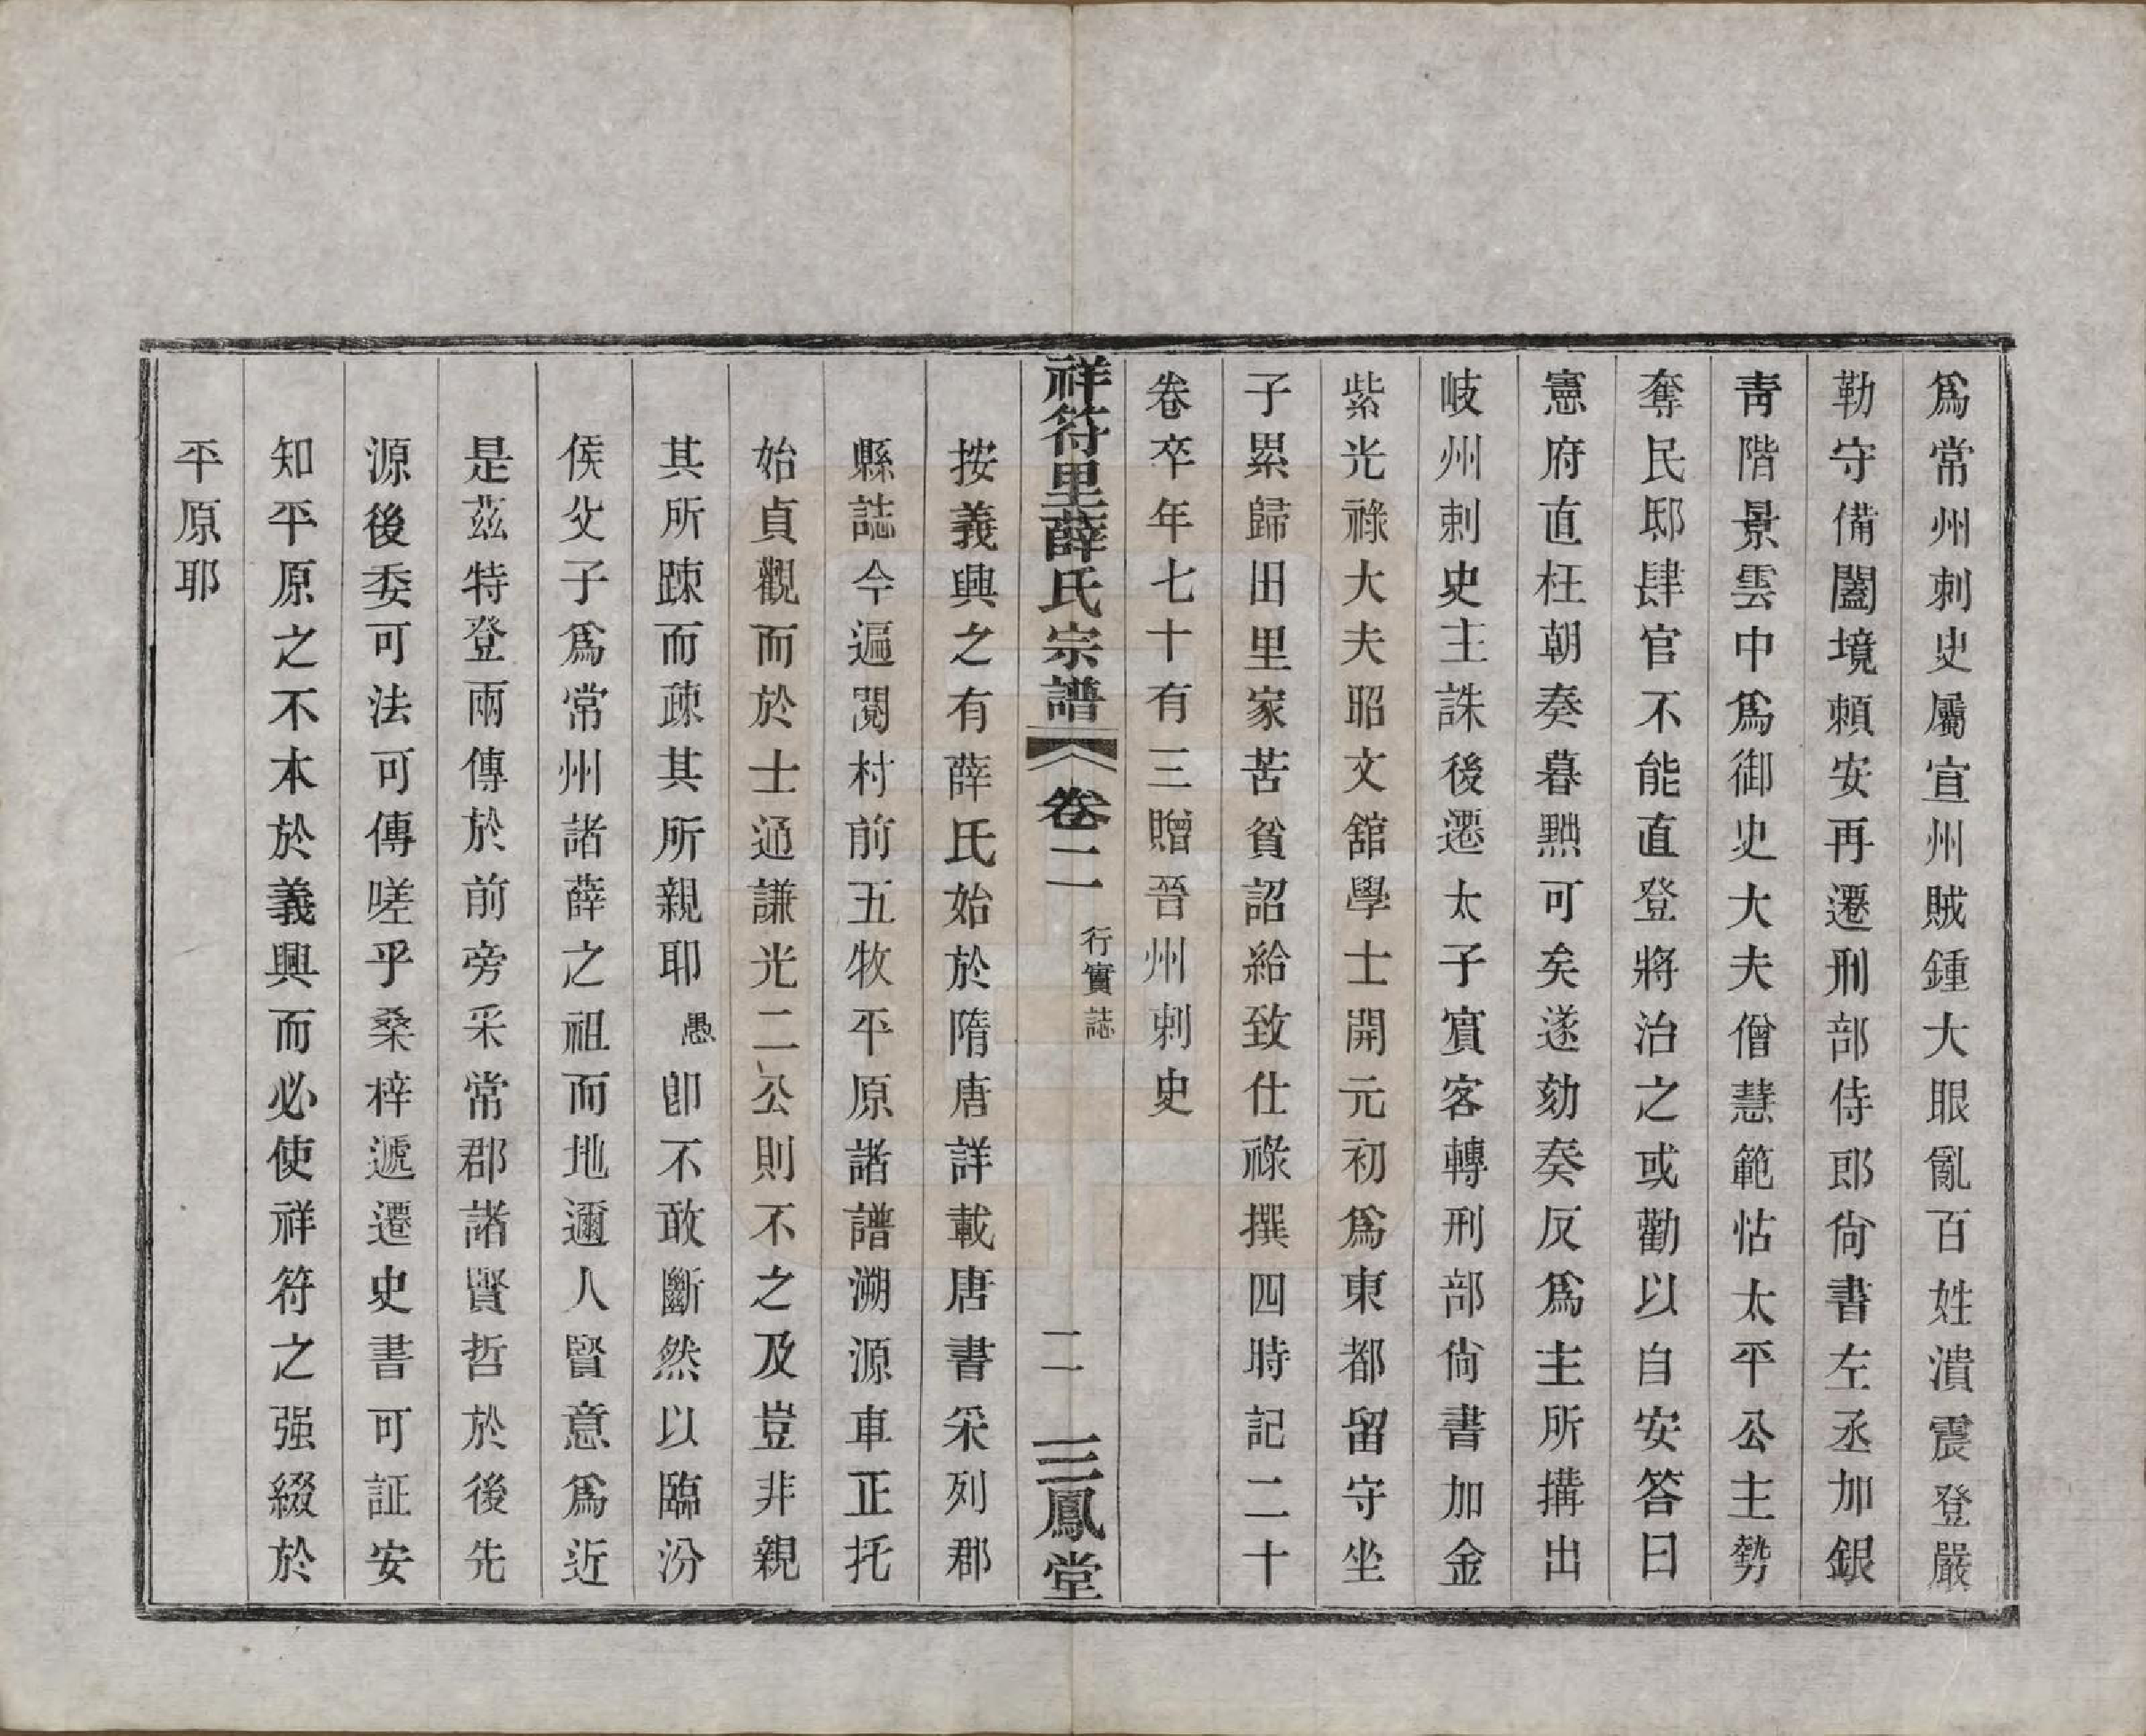 爲常州刺史屬宣州賊鍾大眼亂百姓潰震登嚴
勒守備闔境頼安再遷刑部侍郎尙書左丞加銀
靑階景雲中爲御史大夫僧慧範怙太平公主勢
奪民邸肆官不能直登將治之或勸以自安答曰
憲府直枉朝奏暮黜可矣遂劾奏反爲主所搆出
岐州刺史主誅後遷太子賓客轉刑部尙書加金
紫光祿大夫昭文舘學士開元初爲東都留守坐
子累歸田里家苦貧詔給致仕祿撰四時記二十
卷卒年七十有三贈晉州刺史
祥符里薛氏宗譜 卷二 行實誌 二 三鳳堂
按義興之有薛氏始於隋唐詳載唐書采列郡
縣誌今遍閱村前五牧平原諸譜溯源車正托
始貞觀而於士通謙光二公則不之及豈非親
其所踈而疎其所親耶愚卽不敢斷然以臨汾
侯父子爲常州諸薛之祖而地邇人賢意爲近
是茲特登兩傳於前旁采常郡諸賢哲於後先
源後委可法可傳嗟乎桑梓遞遷史書可証安
知平原之不本於義興而必使祥符之强綴於
平原耶